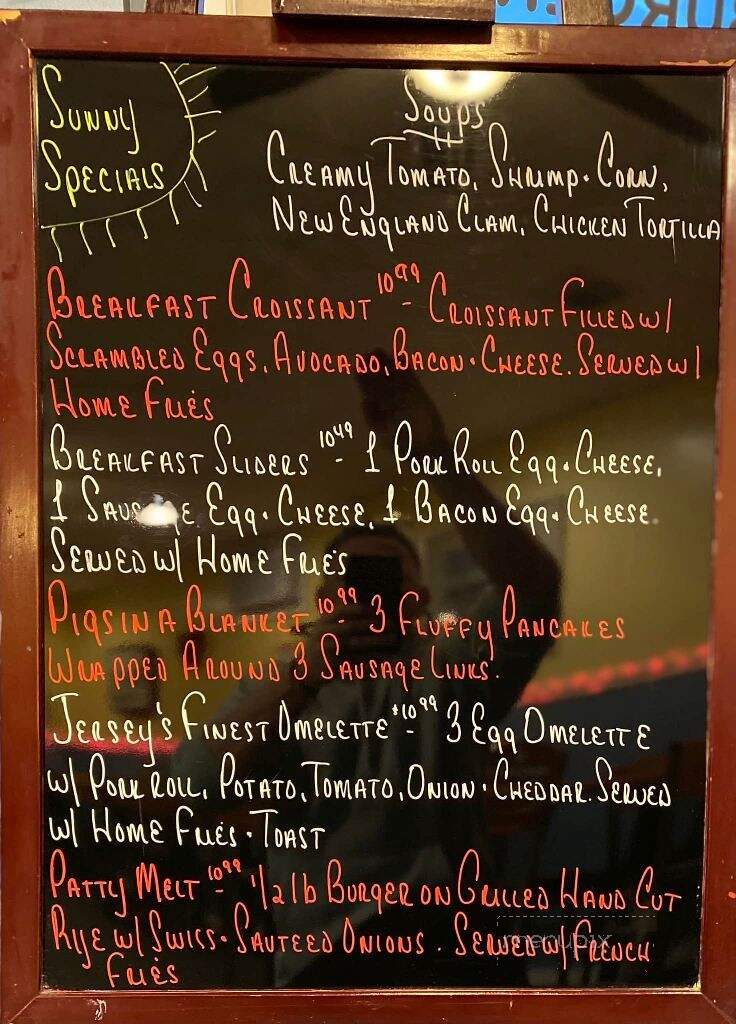 Sunny
Specials
Soups
Creamy Tomato, Shrimp + Corn,
New England Clam, Chicken Tortilla
Breakfast Croissant 10.99 - Croissant Filled w/
Scrambled Eggs, Avocado, Bacon + Cheese. Served w/
Home Fries
Breakfast Sliders 10.49 - 1 Pork Roll Egg + Cheese,
1 Sausage Egg + Cheese, 1 Bacon Egg + Cheese.
Served w/ Home Fries
Pigs in A Blanket 10.99 - 3 Fluffy Pancakes
Wrapped Around 3 Sausage Links.
Jersey's Finest Omelette $10.99 - 3 Egg Omelette
w/ Pork Roll, Potato, Tomato, Onion + Cheddar. Served
w/ Home Fries + Toast
Patty Melt 10.99 - 1/2 lb Burger on Grilled Hand Cut
Rye w/ Swiss + Sauteed Onions. Served w/ French
Fries
menupix